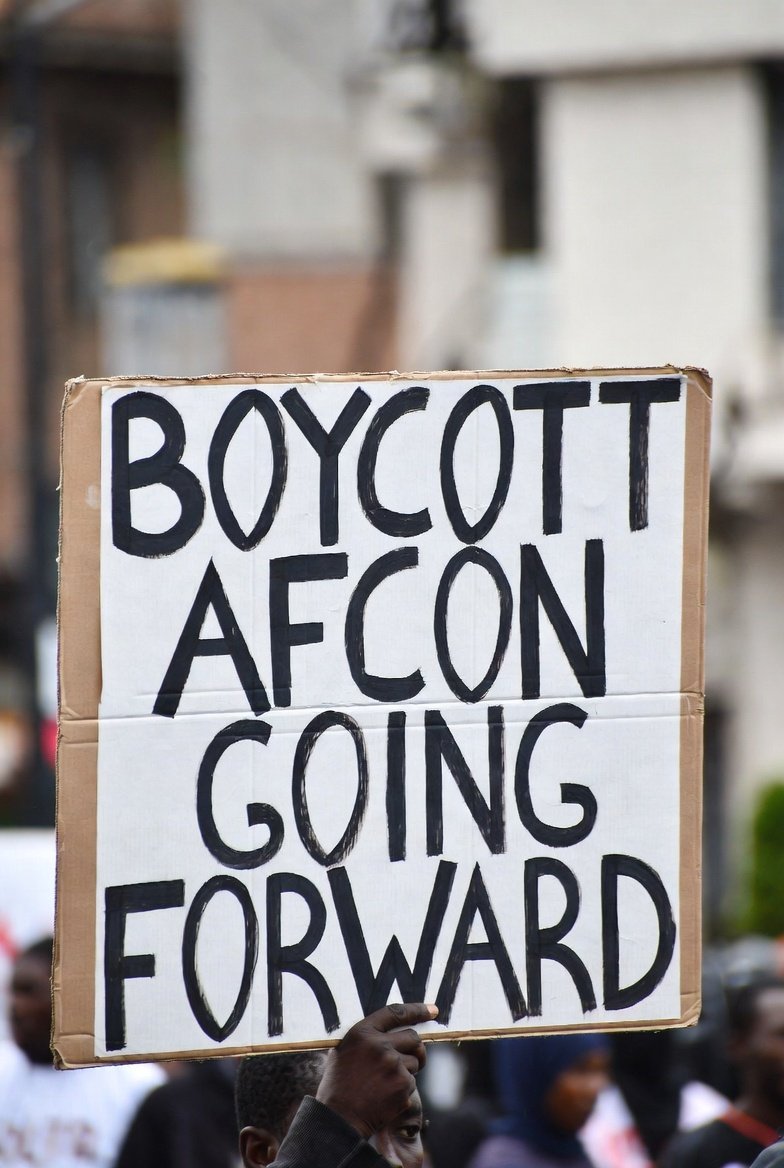 BOYCOTT
AFCON
GOING
FORWARD